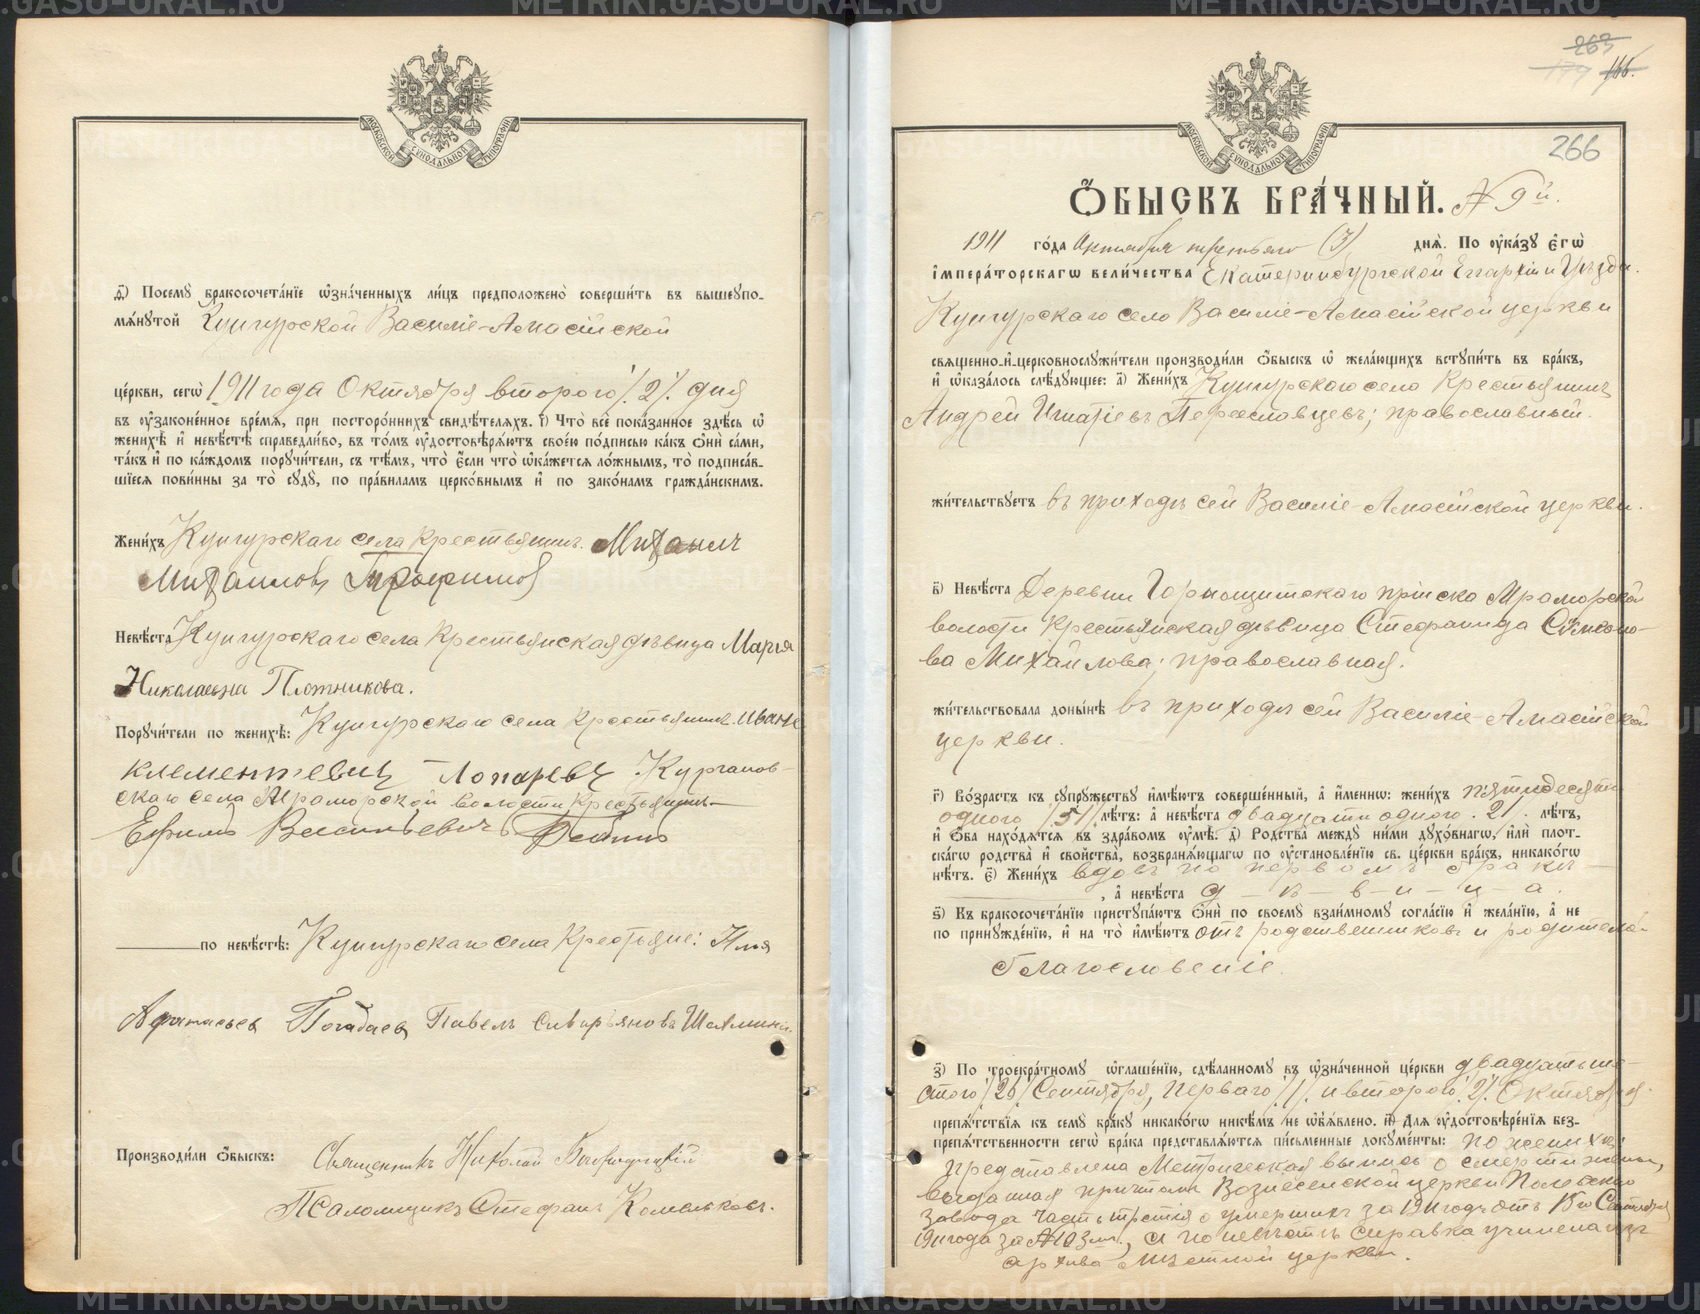 МОСКОВСКОЙ СѴНОДАЛЬНОЙ ТИПОГРАФІИ
з҃) Посемꙋ бракосочета́нїе ѡ҆зна́ченныхъ ли́цъ предположено̀ соверши́ть въ вышеꙋпо-
мѧ́нꙋтой Кунгурской Василіе-Амасійской
це́ркви, сегѡ̀ 1911 года Октября второго /2/. дня
въ ᲂу҆зако́ненное вре́мѧ, при посторо́ннихъ свидѣ́телѧхъ. і҃) Что̀ всѐ пока́занное здѣ́сь ѡ҆
женихѣ̀ и҆ невѣ́стѣ справедли́во, въ то́мъ ᲂу҆достовѣрѧ́ютъ свое́ю по́дписью ка́къ ѻ҆нѝ са́ми,
та́къ и҆ по ка́ждомъ порꙋчи́тели, съ тѣ́мъ, что̀ є҆́сли что̀ ѡ҆ка́жетсѧ ло́жнымъ, то̀ подписа́в-
шїесѧ пови́нны за то̀ сꙋдꙋ̀, по пра́виламъ церко́внымъ и҆ по зако́намъ гражда́нскимъ.
Жени́хъ Кунгурскаго села крестьянинъ. Михаилъ
Михаиловъ Трофимов
Невѣ́ста Кунгурскаго села Крестьянская дѣвица Марія
Николаевна Плотникова.
Порꙋчи́тели по женихѣ̀: Кунгурскаго села Крестьянин. Иванъ
Клементевич Лопаревъ Курганов-
скаго села Мраморской волости крестьянинъ
Ефимъ Васильевичъ
по невѣ́стѣ: Кунгурскаго села Крестьяне: Илья
Афанасьев Погадаев Павелъ Шаламинъ
Производи́ли ѻ҆́быскъ: Священникъ Николай Богородицкій
Псаломщикъ Стефанъ Комельковъ.
263
179 166.
266
МОСКОВСКОЙ СѴНОДАЛЬНОЙ ТИПОГРАФІИ
Ѻ҆́БЫСКЪ БРА́ЧНЫЙ. № 9й.
1911 го́да Октября третьяго (3) днѧ̀. По ᲂу҆ка́зꙋ є҆гѡ̀
і҆мпера́торскагѡ вели́чества Екатеринбургской Епархіи и Уѣзда.
Кунгурскаго село Василіе-Амасійской церкви
свѧще́нно-и҆-церковнослꙋжи́тели производи́ли ѻ҆́быскъ ѡ҆ жела́ющихъ встꙋпи́ть въ бра́къ,
и҆ ѡ҆каза́лось слѣ́дꙋющее: а҃) Жени́хъ Кунгурскаго села Крестьянинъ
Андрей Игнатіевъ Переславцевъ; православный.
жи́тельствꙋетъ въ приходѣ сей Василіе-Амасійской церкви.
в҃) Невѣ́ста Деревни Горнощитскаго пріиска Мраморской
волости крестьянская дѣвица Стефанида
ва Михайлова; православная.
жи́тельствовала доны́нѣ въ приходѣ сей Василіе-Амасійской
церкви.
г҃) Во́зрастъ къ сꙋпрꙋ́жествꙋ и҆мѣ́ютъ соверше́нный, а҆ и҆́меннѡ: жени́хъ пятидесяти
одного /51/ лѣ́тъ: а҆ невѣ́ста двадцати одного. 21/. лѣ́тъ,
и҆ ѻ҆́ба нахо́дѧтсѧ въ здра́вомъ ᲂу҆мѣ̀. д҃) Родства̀ междꙋ̀ ни́ми дꙋхо́внагѡ, и҆лѝ плот-
ска́гѡ родства̀ и҆ сво́йства, возбранѧ́ющагѡ по ᲂу҆становле́нїю св. це́ркви бра́къ, никако́гѡ
нѣ́тъ. є҃) Жени́хъ вдовъ по первомъ бракѣ
, а҆ невѣ́ста д-ѣ-в-и-ц-а.
ѕ҃) Къ бракосочета́нїю пристꙋпа́ютъ ѻ҆нѝ по своемꙋ̀ взаи́мномꙋ согла́сїю и҆ жела́нїю, а҆ не
по принꙋжде́нїю, и҆ на то̀ и҆мѣ́ютъ отъ родственниковъ и родителей
благословеніе.
з҃) По троекра́тномꙋ ѡ҆глаше́нїю, сдѣ́ланномꙋ въ ѡ҆зна́ченной це́ркви двадцать ше-
стого /26/ Сентября, перваго /1/. и второго /2/. Октября
препѧ́тствїѧ къ семꙋ̀ бра́кꙋ никако́гѡ никѣ́мъ не ѡ҆б̾ѧ́влено. и҃) Длѧ̀ ᲂу҆достовѣре́нїѧ без-
препѧ́тственности сегѡ̀ бра́ка представлѧ́ютсѧ пи́сьменные докꙋме́нты: по женихѣ
представлена Метрическая выпись о смерти жены,
выданная причтомъ Вознесенской церкви Полевскаго
завода часть третія о умершихъ за 1911 годъ отъ 15го Сентября
1911 года за № 103м., а по невѣстѣ справка учинена изъ
архива мѣстной церкви.
METRIKI.GASU-URAL.RU